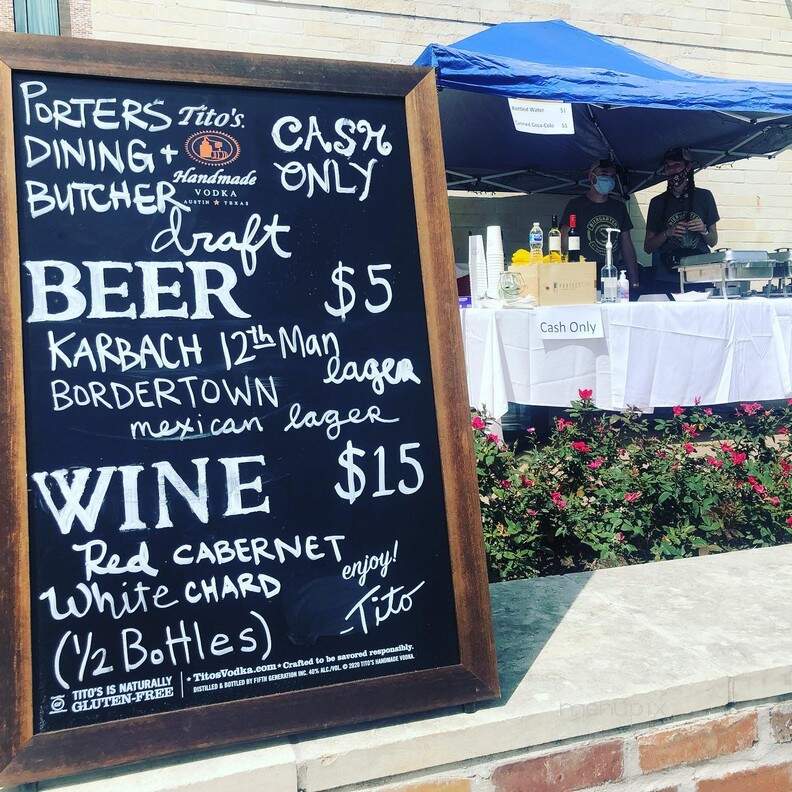 PORTERS
DINING +
BUTCHER
Tito's.
Handmade
VODKA
AUSTIN ★ TEXAS
CASH
ONLY
draft
BEER $5
KARBACH 12th Man
lager
BORDERTOWN
mexican lager
WINE $15
Red CABERNET
White CHARD
(1/2 Bottles)
enjoy!
-Tito
TITO'S IS NATURALLY
GLUTEN-FREE
• TitosVodka.com • Crafted to be savored responsibly.
DISTILLED & BOTTLED BY FIFTH GENERATION INC. 40% ALC./VOL. © 2020 TITO'S HANDMADE VODKA.
Bottled Water $1
Canned Coca-Cola
Cash Only